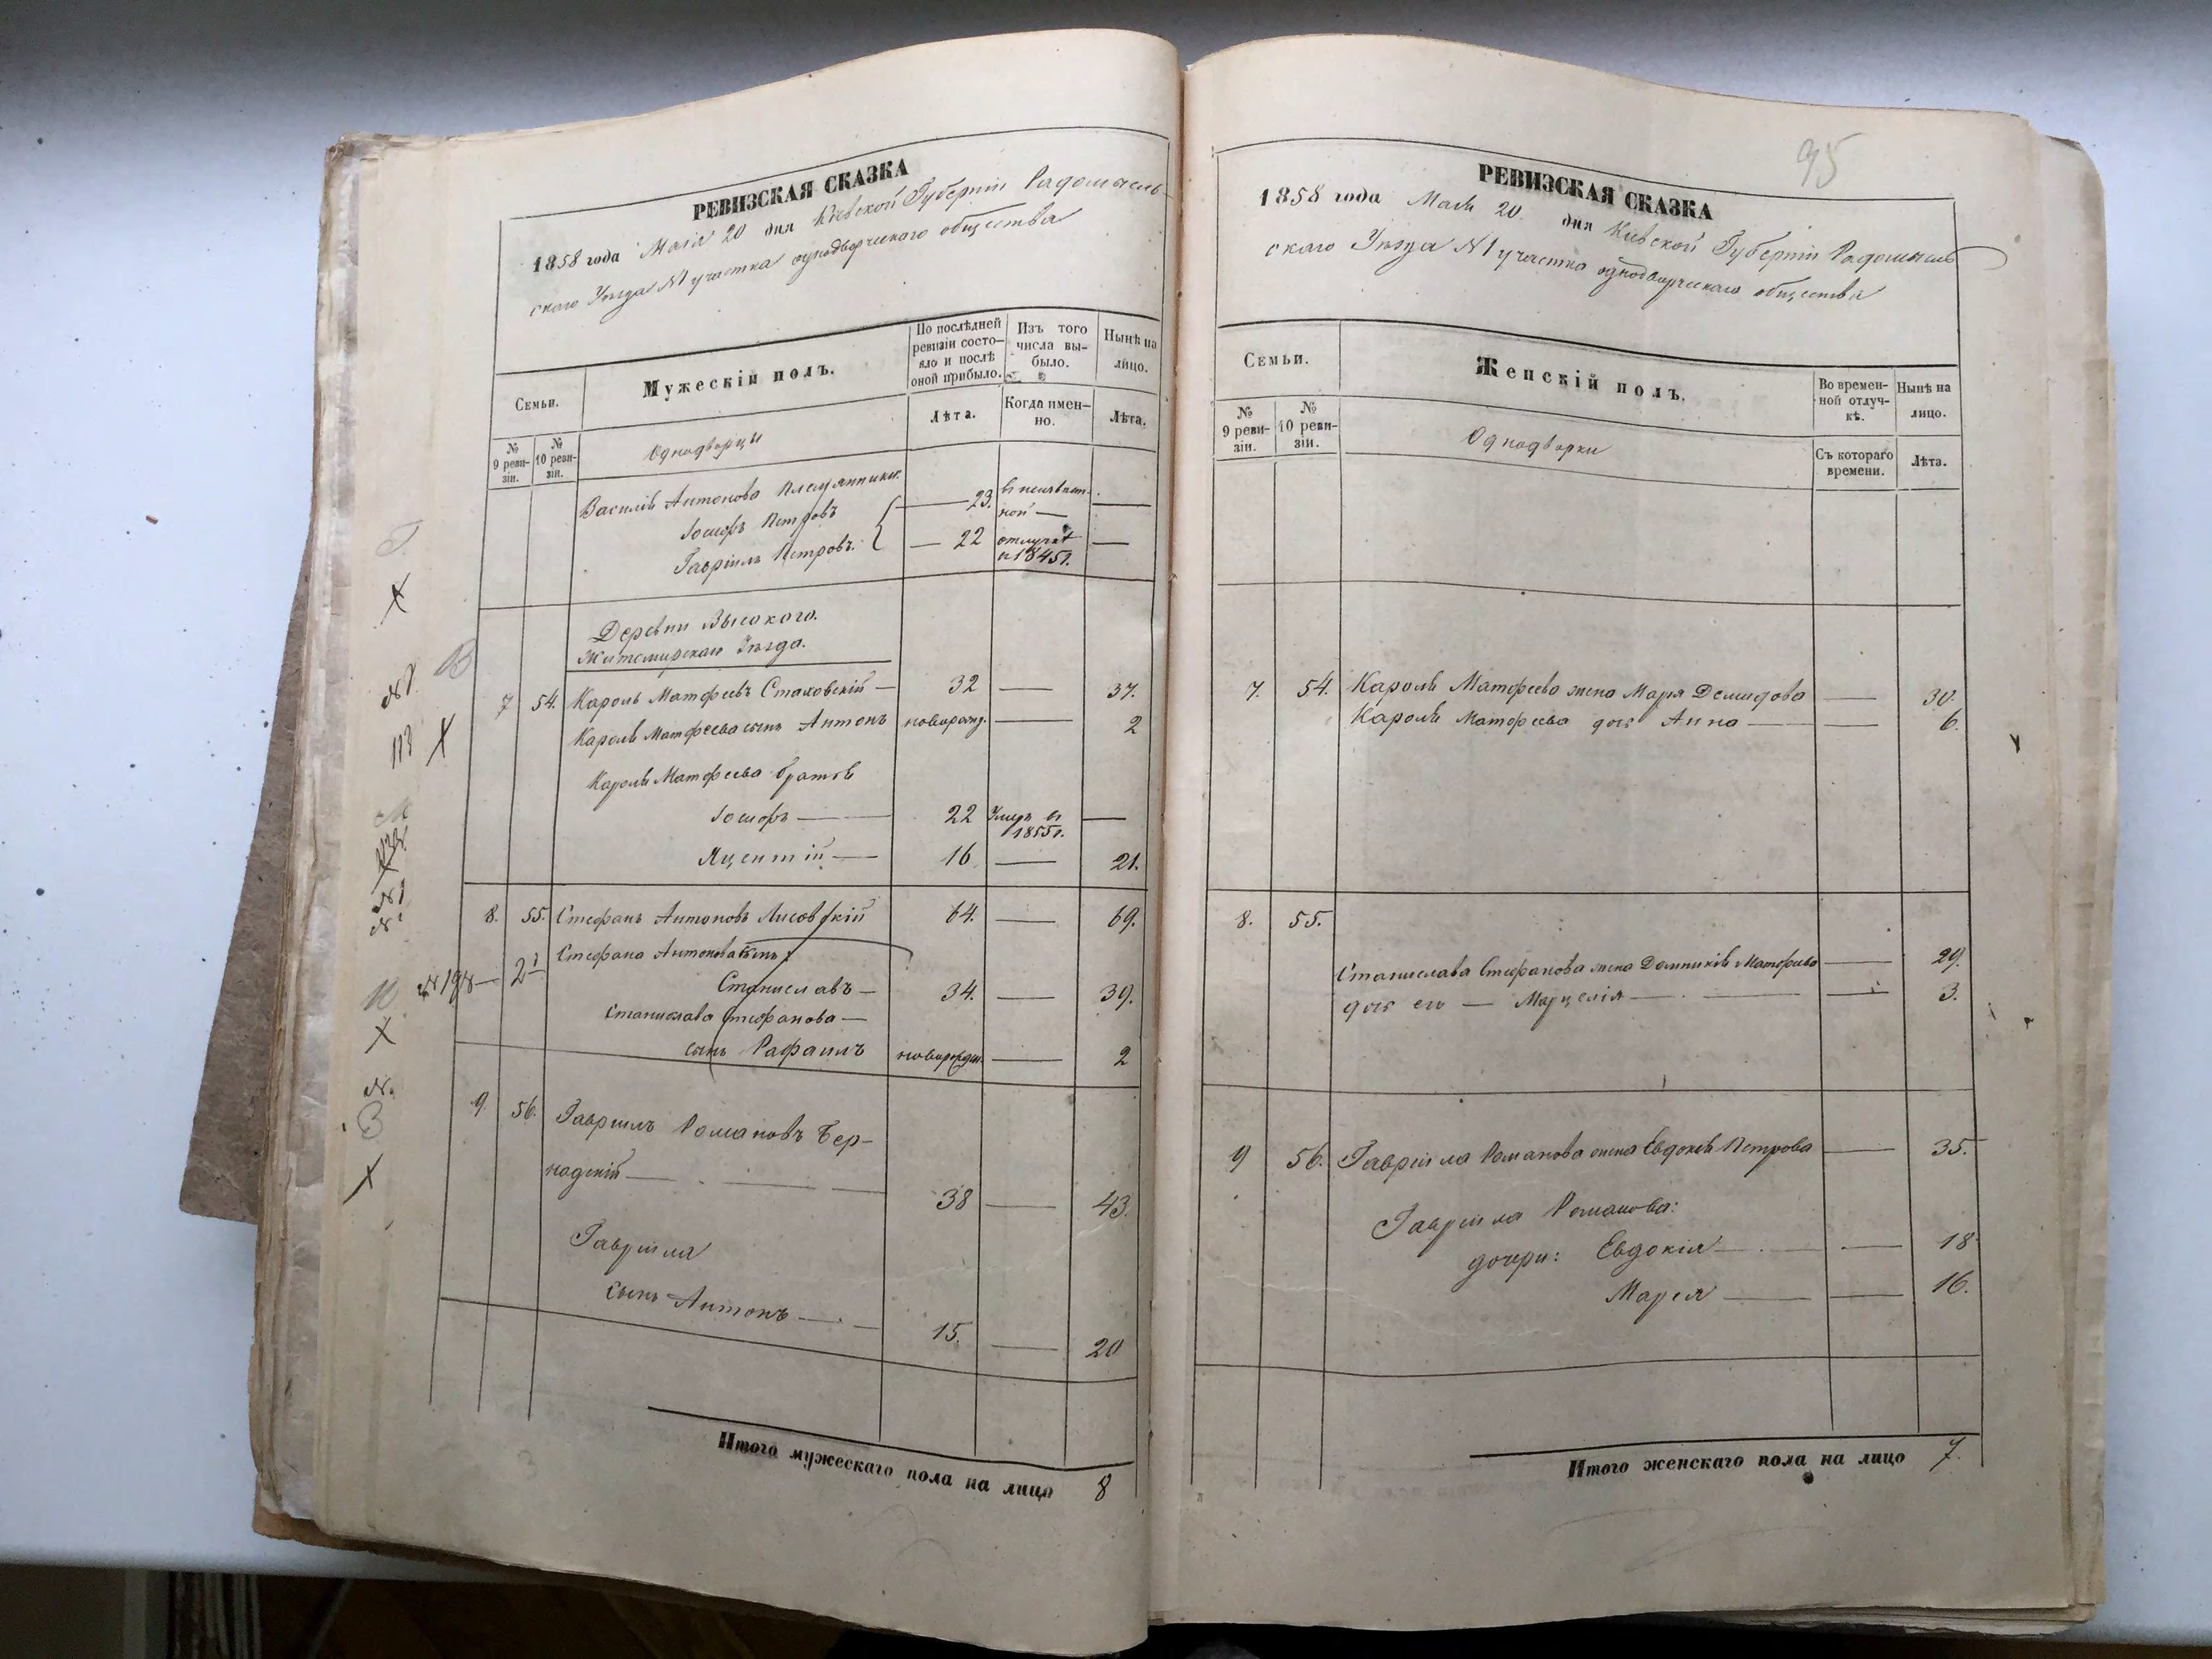 РЕВИЗСКАЯ СКАЗКА
1858 года Маія 20 дня Кіевской Губерніи Радомысль-
скаго Уѣзда №1 участка однодворческаго общества
Семьи.
Мужескій полъ.
По послѣдней ревизіи состо-яло и послѣ оной прибыло.
Изъ того числа вы-было.
Нынѣ на лицо.
№ 9 реви-зіи.
№ 10 реви-зіи.
Однодворцы
Лѣта.
Когда имен-но.
Лѣта.
Василія Антонова племянники:
Іосифъ Петровъ — 23. въ неизвѣст-ной —
Гавріилъ Петровъ. — 22 отлучкѣ 1845г. —
Деревни Высокого.
Житомирскаго Уѣзда.
7 54. Кароль Матфеевъ Стаховскій — 32 — 37.
Кароля Матфеева сынъ Антонъ новорожд. — 2
Кароля Матфеева братья
Іосифъ — 22 Умеръ въ 1855г. —
Яцентій — 16 — 21.
8. 55. Стефанъ Антоновъ Лисовскій 64. — 69.
Стефана Антонова сынъ
Станиславъ — 34. — 39.
Станислава Стефанова —
сынъ Рафаилъ новорожден. — 2
9 56. Гавріилъ Романовъ Бер-
надскій — 38 — 43.
Гавріила
сынъ Антонъ — 15. — 20
Итого мужескаго пола на лицо 8
95
РЕВИЗСКАЯ СКАЗКА
1858 года Маія 20 дня Кіевской Губерніи Радомысль
скаго Уѣзда №1 участка однодворческаго общества
Семьи.
Женскій полъ.
Во времен-ной отлуч-кѣ.
Нынѣ на лицо.
№ 9 реви-зіи.
№ 10 реви-зіи.
Однодворки
Съ котораго времени.
Лѣта.
7. 54. Кароля Матфеева жена Марія Демидова — 30.
Кароля Матфеева дочь Анна — — 6.
8. 55.
Станислава Стефанова жена Доминикія Матфеева — 29.
дочь его — Марцелія — — 3.
9 56. Гавріила Романова жена Евдокія Петрова — 35.
Гавріила Романова:
дочери: Евдокія — — 18
Марія — — 16.
Итого женскаго пола на лицо 7.